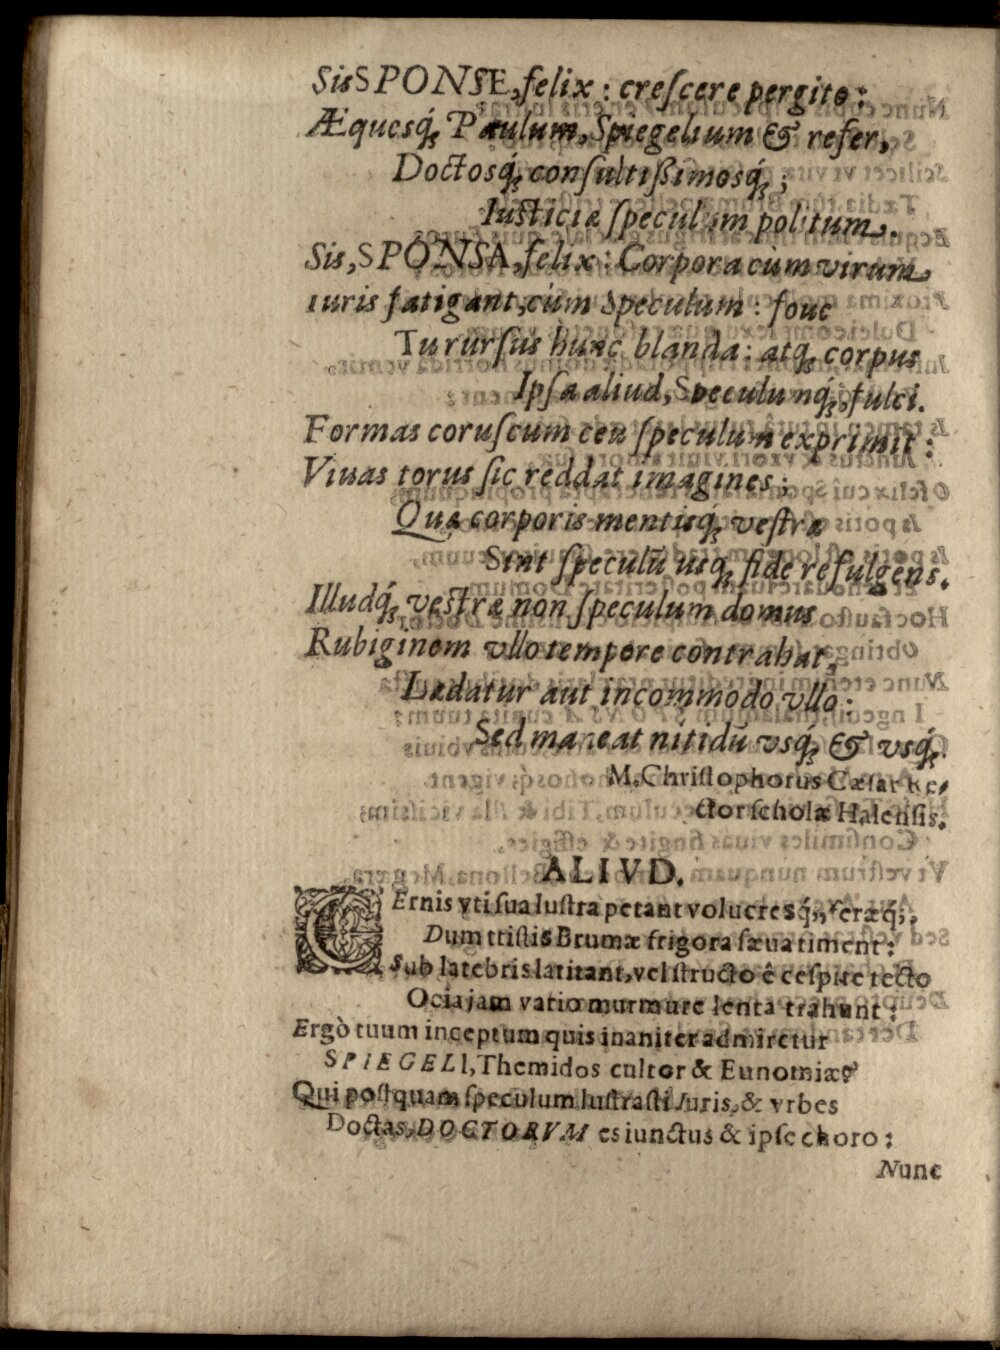 Sis SPONSE, felix: creſcere pergito:
Æquesq́; Paulum, Spiegelium & refer,
Doctosq́; conſultißimosq́;;
Iusticiæ ſpeculum politum.
Sis, SPONSA, felix: Corpora cùm virum
iuris fatigant, cùm Speculum: foue
Tu rursùs hunc blanda: atq; corpus
Ipſa aliud, Speculumq́;, fulci.
Formas coruſcum ceu ſpeculum exprimit:
Viuas torus ſic reddat imagines;
Quæ corporis mentisq́; veſtræ
Sint ſpeculū usq; fide refulgens.
Illudq́; vestræ non ſpeculum domus
Rubiginem vllo tempore contrahat,
Lædatur aut incommodo vllo:
Sed maneat nitidū vsq́; & vsq́;.
M. Chriſtophorus Cæſar Re-
ctor ſcholæ Halenſis.
ALIVD.
CErnis vti ſua luſtra petant volucresq́;, feræq́;,
Dum triſtis Brumæ frigora ſæua timent:
Sub latebris latitant, vel ſtructo ê ceſpite tecto
Ocia jam vario murmure lenta trahunt:
Ergò tuum inceptum quis inaniter admiretur
SPIEGELI, Themidos cultor & Eunomiæ?
Qui poſtquam ſpeculum luſtraſti Iuris, & vrbes
Doctas, DOCTORVM es iunctus & ipſe choro:
Nunc